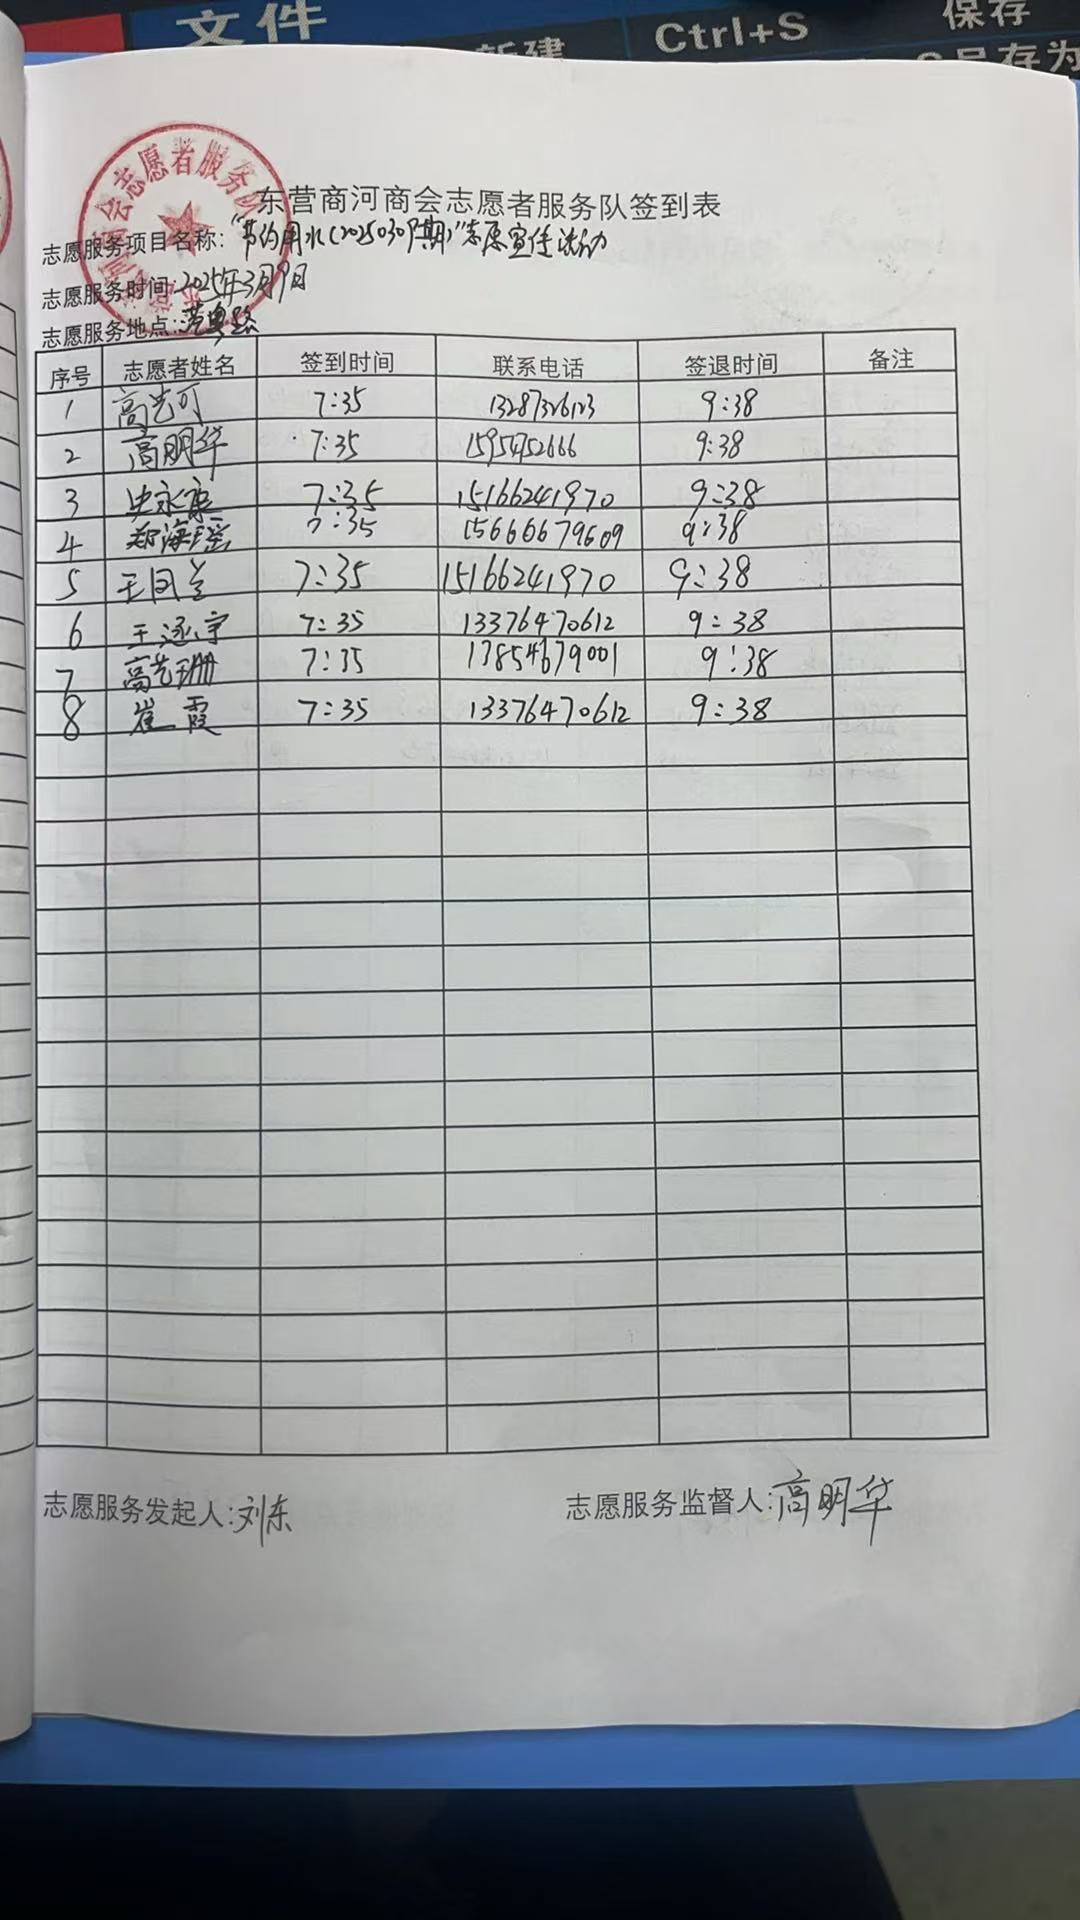 文件
新建
Ctrl+S
保存
另存为
会志愿者服务队
东营商河商会志愿者服务队签到表
志愿服务项目名称:“节约用水(20250309期)”志愿宣传活动
志愿服务时间 2025年3月9日
志愿服务地点:
序号 志愿者姓名 签到时间 联系电话 签退时间 备注
1 高艺可 7:35 13287326123 9:38
2 高明华 7:35 15954752666 9:38
3 史永康 7:35 15166241970 9:38
4 郑海瑶 7:35 15666679609 9:38
5 王凤兰 7:35 15166241970 9:38
6 王逐宇 7:35 13376470612 9:38
7 高艺珊 7:35 17854679001 9:38
8 崔霞 7:35 13376470612 9:38
志愿服务发起人:刘东 志愿服务监督人:高明华